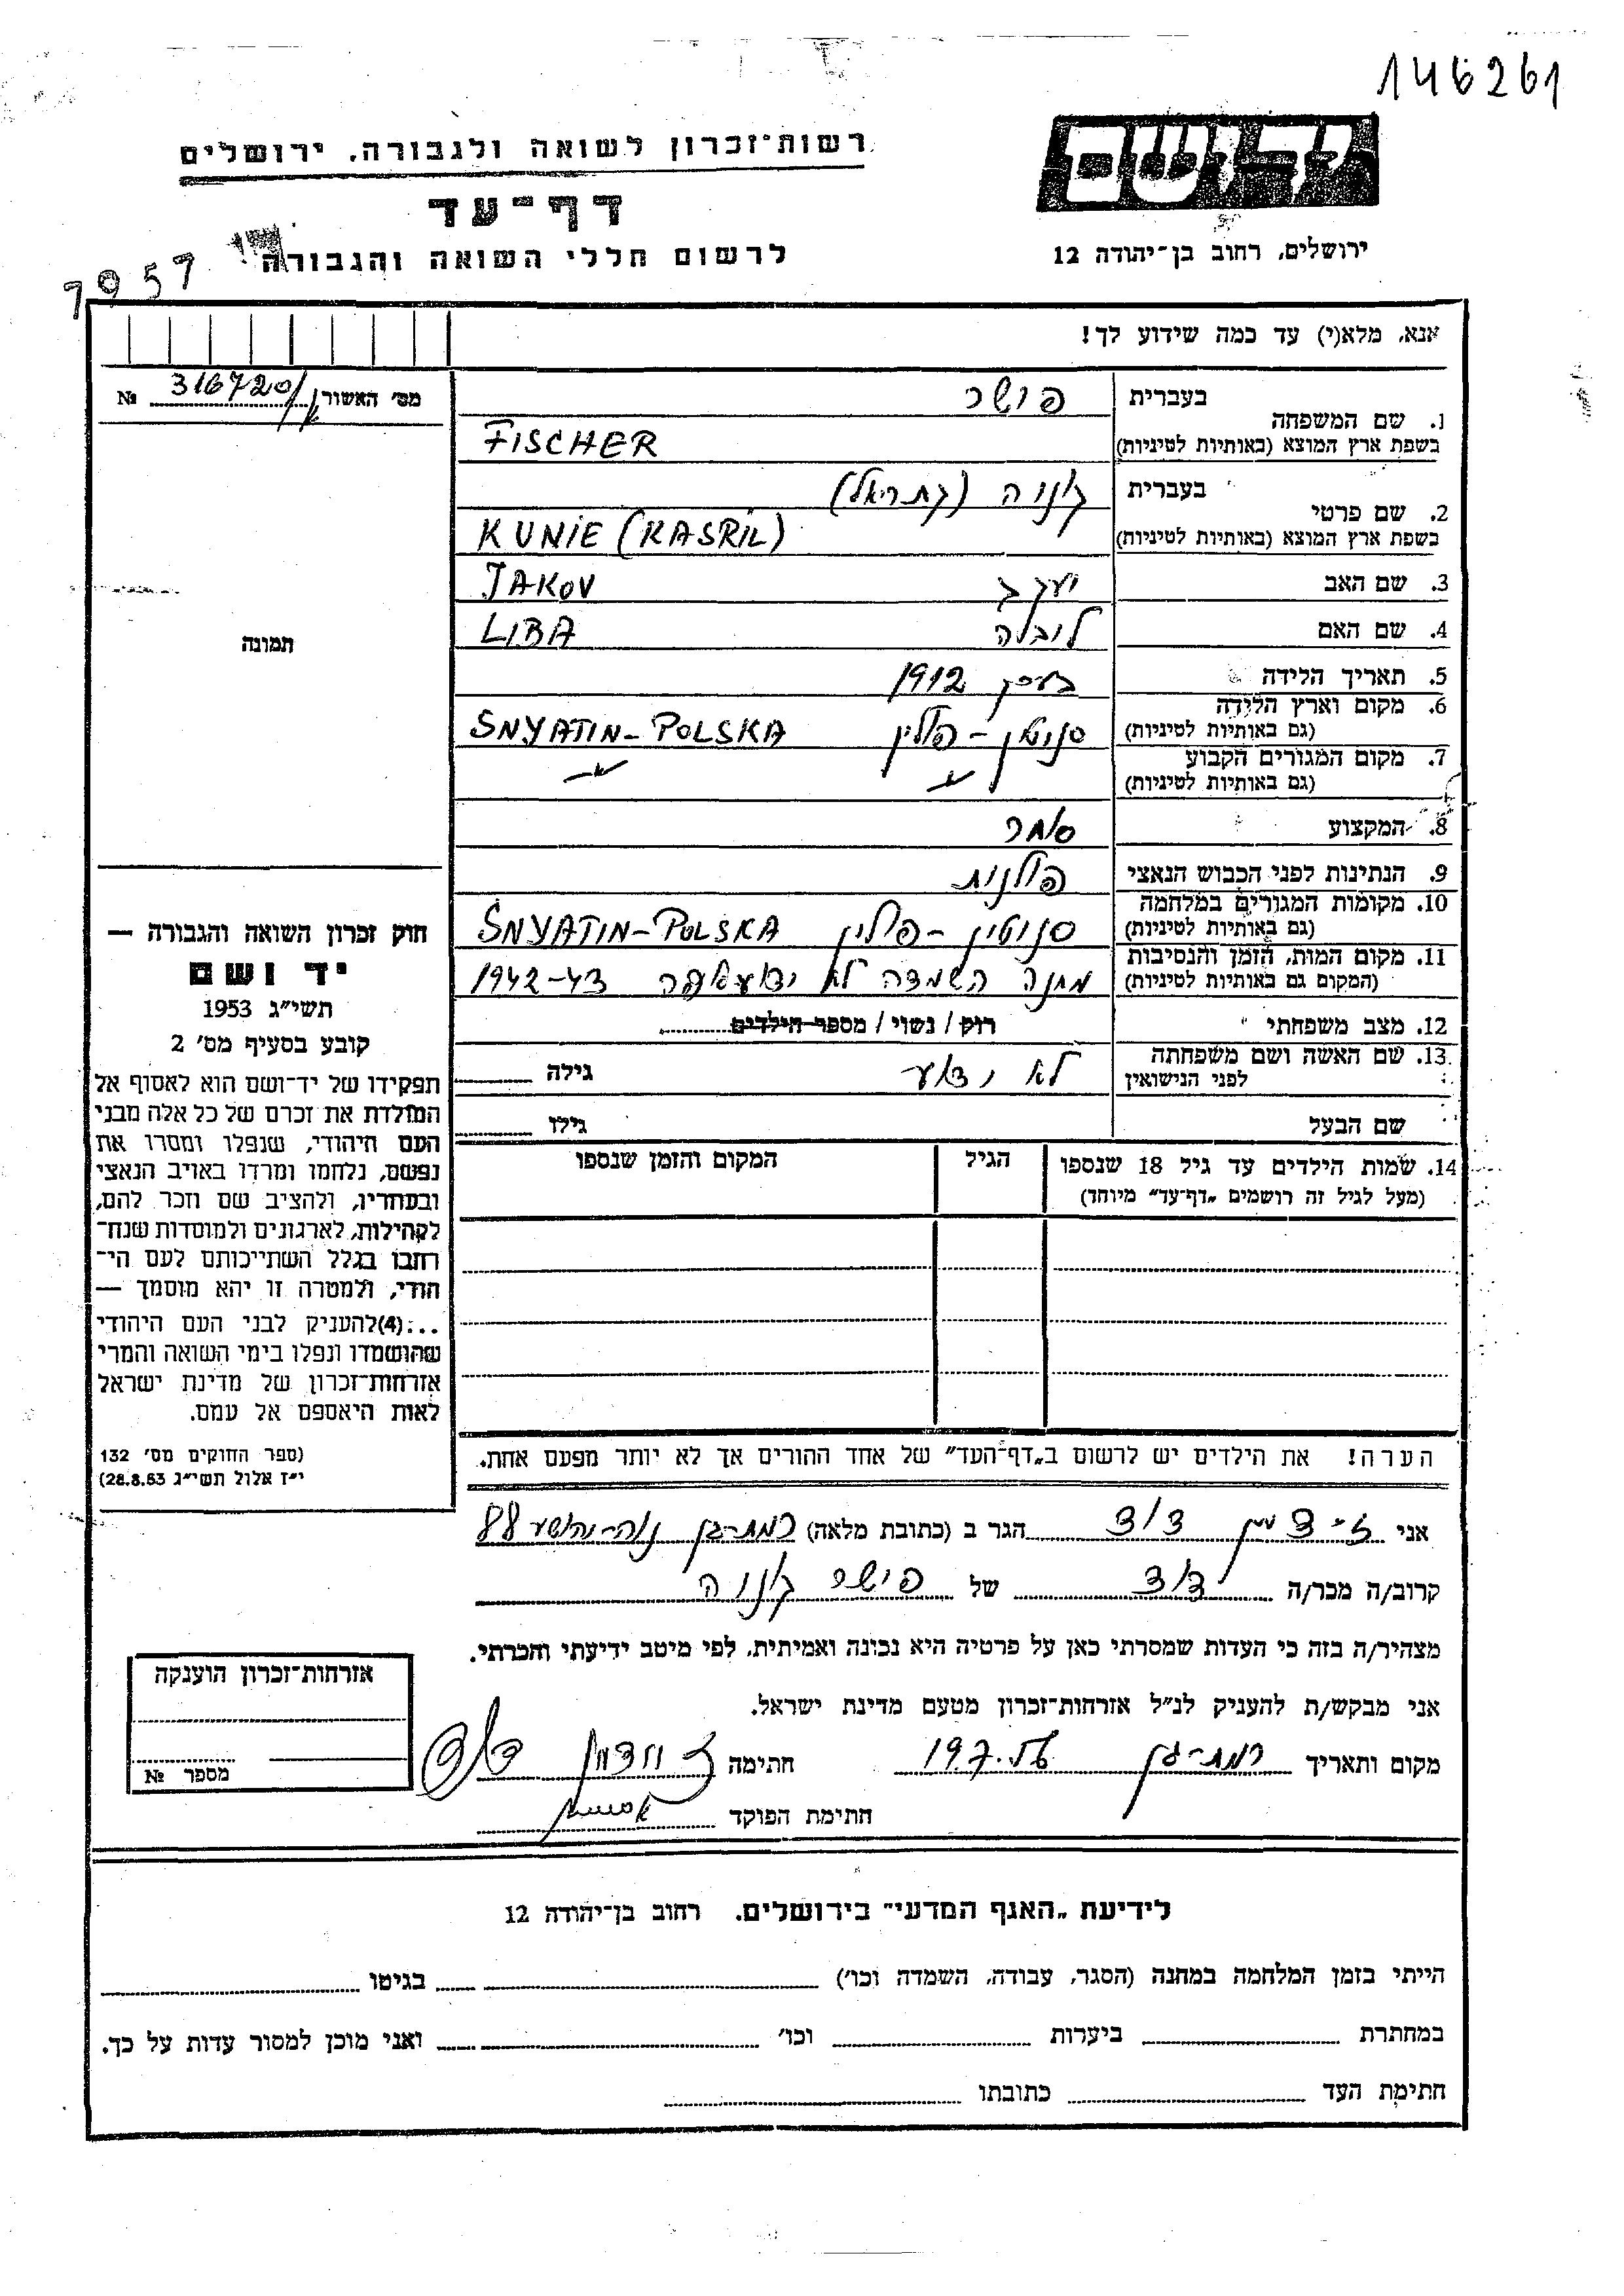 146261
רשות־זכרון לשואה ולגבורה, ירושלים
יד ושם
דף־עד
ירושלים, רחוב בן־יהודה 12
לרשום חללי השואה והגבורה
7957
אנא, מלא(י) עד כמה שידוע לך!
מס' האשור 316720 №
1. שם המשפחה
בעברית פישר
בשפת ארץ המוצא (באותיות לטיניות) FISCHER
2. שם פרטי
בעברית קונה (כתריאל)
בשפת ארץ המוצא (באותיות לטיניות) KUNIE (KASRIL)
3. שם האב יעקב JAKOV
4. שם האם ליבלה LIBA
5. תאריך הלידה בערך 1912
6. מקום וארץ הלידה
(גם באותיות לטיניות) סניטין – פולין SNYATIN–POLSKA
7. מקום המגורים הקבוע
(גם באותיות לטיניות) –"– –"–
8. המקצוע סוחר
9. הנתינות לפני הכבוש הנאצי פולנית
10. מקומות המגורים במלחמה
(גם באותיות לטיניות) סניטין – פולין SNYATIN–POLSKA
11. מקום המות, הזמן והנסיבות
(המקום גם באותיות לטיניות) מחנה השמדה לא ידוע איפה 1942–43
12. מצב משפחתי רווק / נשוי / מספר הילדים
13. שם האשה ושם משפחתה
לפני הנישואין לא ידוע גילה
שם הבעל גילו
14. שמות הילדים עד גיל 18 שנספו הגיל המקום והזמן שנספו
(מעל לגיל זה רושמים „דף־עד" מיוחד)
תמונה
חוק זכרון השואה והגבורה —
יד ושם
תשי"ג 1953
קובע בסעיף מס' 2
תפקידו של יד־ושם הוא לאסוף אל
המולדת את זכרם של כל אלה מבני
העם היהודי, שנפלו ומסרו את
נפשם, נלחמו ומרדו באויב הנאצי
ובעוזריו, ולהציב שם וזכר להם,
לקהילות, לארגונים ולמוסדות שנח־
רבו בגלל השתייכותם לעם הי־
הודי, ולמטרה זו יהא מוסמך —
...(4) להעניק לבני העם היהודי
שהושמדו ונפלו בימי השואה והמרי
אזרחות־זכרון של מדינת ישראל
לאות היאספם אל עמם.
(ספר החוקים מס' 132
י"ז אלול תשי"ג 28.8.53)
הערה! את הילדים יש לרשום ב„דף־העד" של אחד ההורים אך לא יותר מפעם אחת.
אני זיידמן דוד הגר ב (כתובת מלאה) רמת-גן נוה-יהושע 88
קרוב/ה מכר/ה דוד של פישר קונה
מצהיר/ה בזה כי העדות שמסרתי כאן על פרטיה היא נכונה ואמיתית, לפי מיטב ידיעתי והכרתי.
אני מבקש/ת להעניק לנ"ל אזרחות־זכרון מטעם מדינת ישראל.
מקום ותאריך רמת-גן 19.7.56 חתימה זיידמן דוד
חתימת הפוקד
אזרחות־זכרון הוענקה
מספר №
לידיעת „האגף המדעי" בירושלים, רחוב בן־יהודה 12
הייתי בזמן המלחמה במחנה (הסגר, עבודה, השמדה וכו') בגיטו
במחתרת ביערות וכו' ואני מוכן למסור עדות על כך.
חתימת העד כתובתו